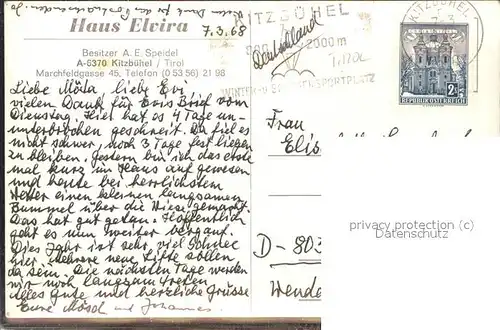 Vielen Dank für den
Haus Elvira
7.3.68
Besitzer A. E. Speidel
A-6370 Kitzbühel / Tirol
Marchfeldgasse 45, Telefon (0 53 56) 21 98
Liebe Mösla, liebe Evi,
vielen Dank für Evis Brief vom
Dienstag. Hier hat es 4 Tage un-
unterbrochen geschneit. Da fiel es
nicht schwer, noch 3 Tage fest liegen
zu bleiben. Gestern bin ich das erste
mal kurz im Haus auf gewesen
und heute bei herrlichstem
Wetter einen kleinen langsamen
Bummel über die Wiese gemacht.
Das hat gut getan. Hoffentlich
geht es nun weiter bergauf.
Dies Jahr ist sehr viel Schnee
hier. Mehrere neue Lifte sollen
da sein. Die nächsten Tage werden
wir noch langsam treten
Alles Gute und herzliche Grüsse
Eure Mösd und Johannes
KITZBÜHEL
800 2000 m
Deutschland
TIROL
WINTER-U SPORTPLATZ
KITZBÜHEL
7.3.
2S
REPUBLIK ÖSTERREICH
Frau
Elis
D-803
Wende
privacy protection (c)
Datenschutz